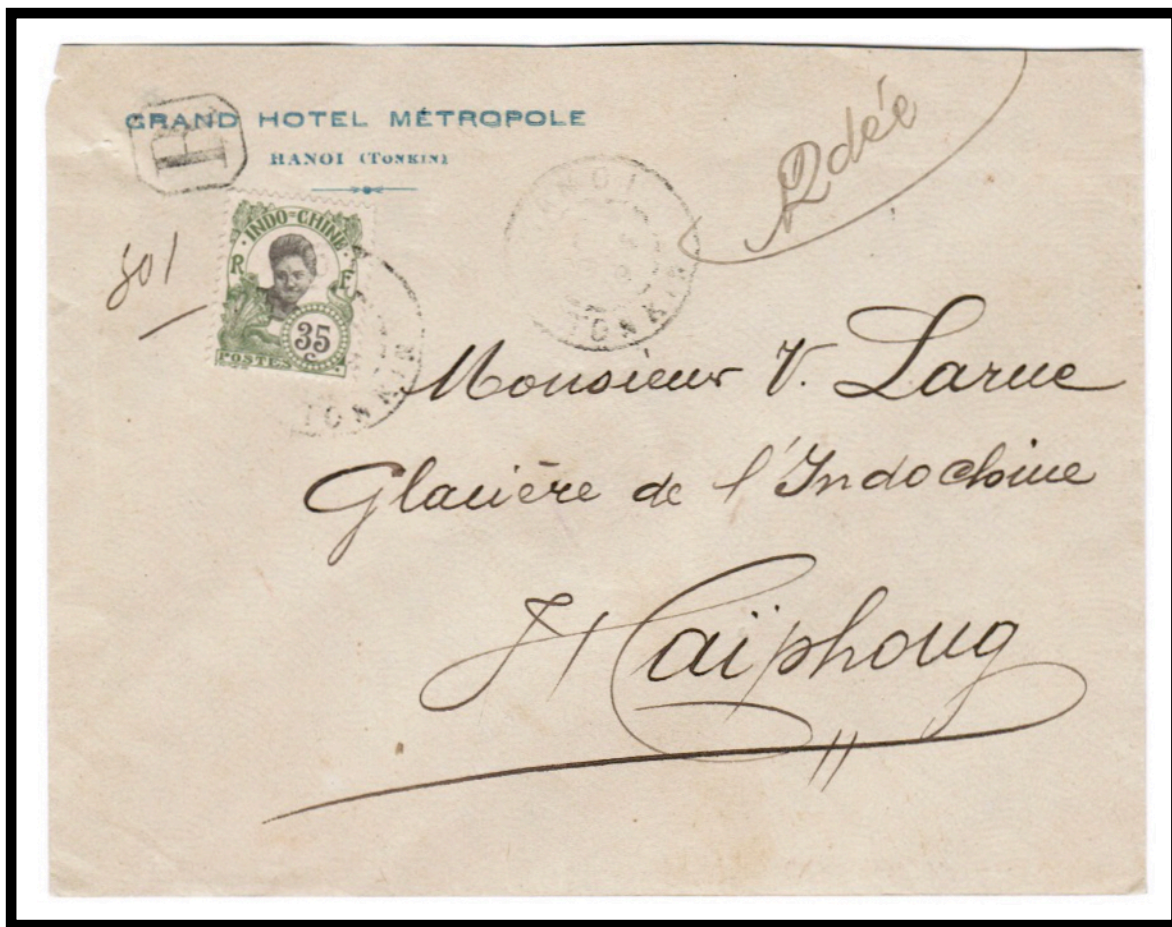 GRAND HOTEL MÉTROPOLE
HANOI (TONKIN)
R
Rdée
801
INDO-CHINE
R F
35
c
POSTES
ANOI
TONKIN
TONKIN
Monsieur V. Larue
Glacière de l'Indochine
Haïphong